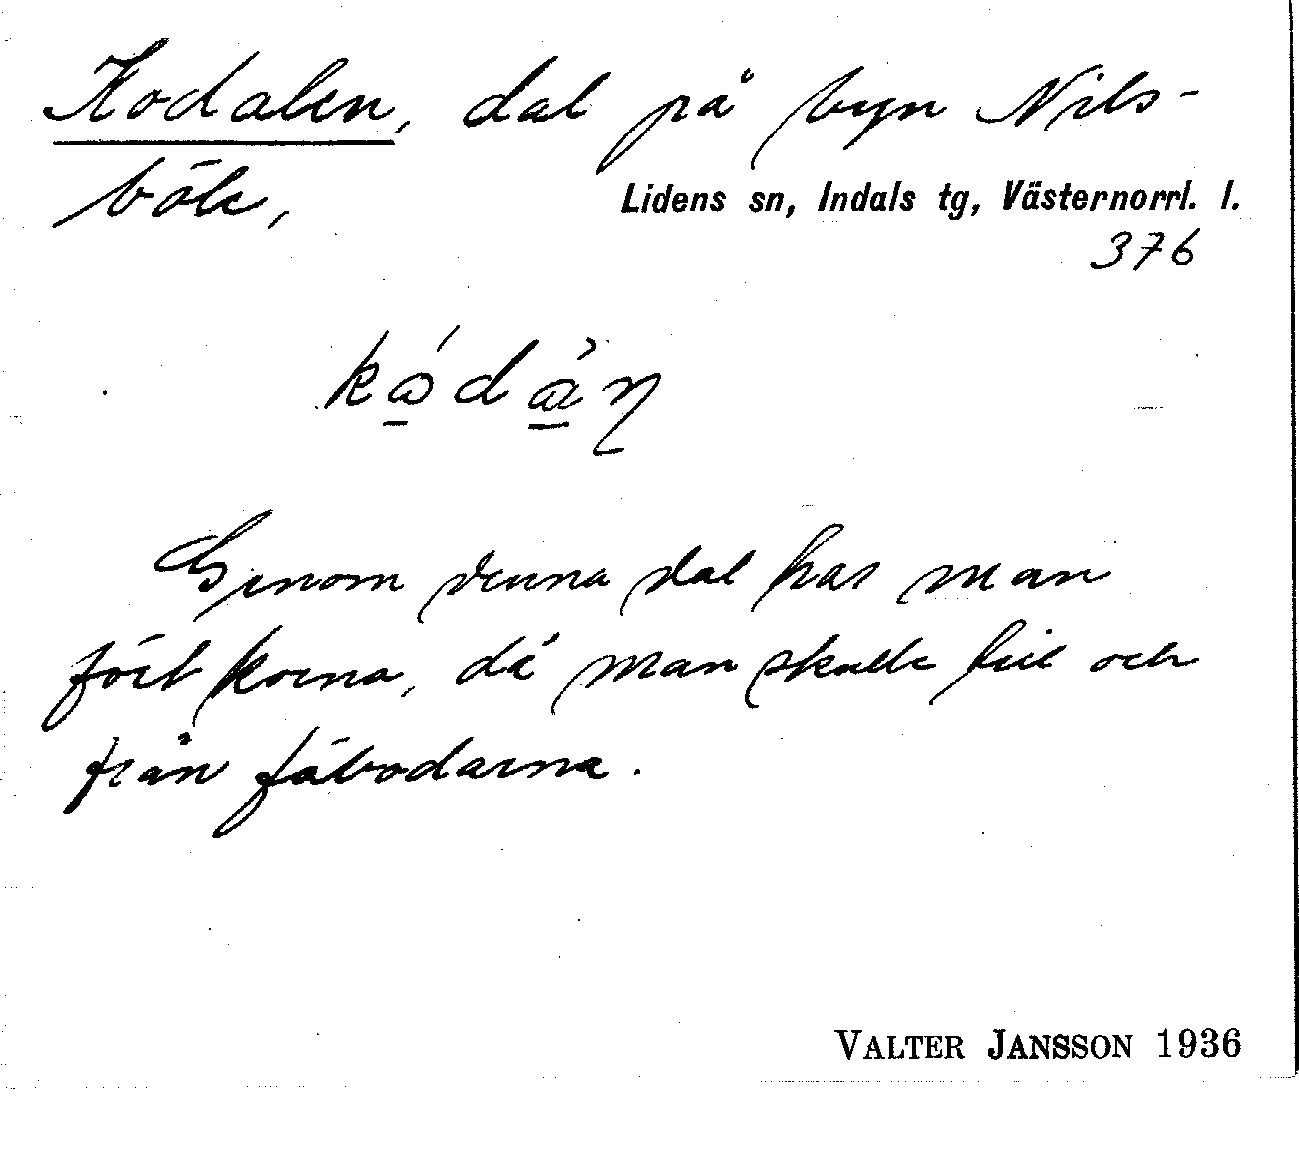 Kodalen, dal på byn Nils-
böle,
Lidens sn, Indals tg, Västernorrl. l.
376
Genom denna dal har man
fört korna, då man skulle till och
från fäbodarna.
VALTER JANSSON 1936